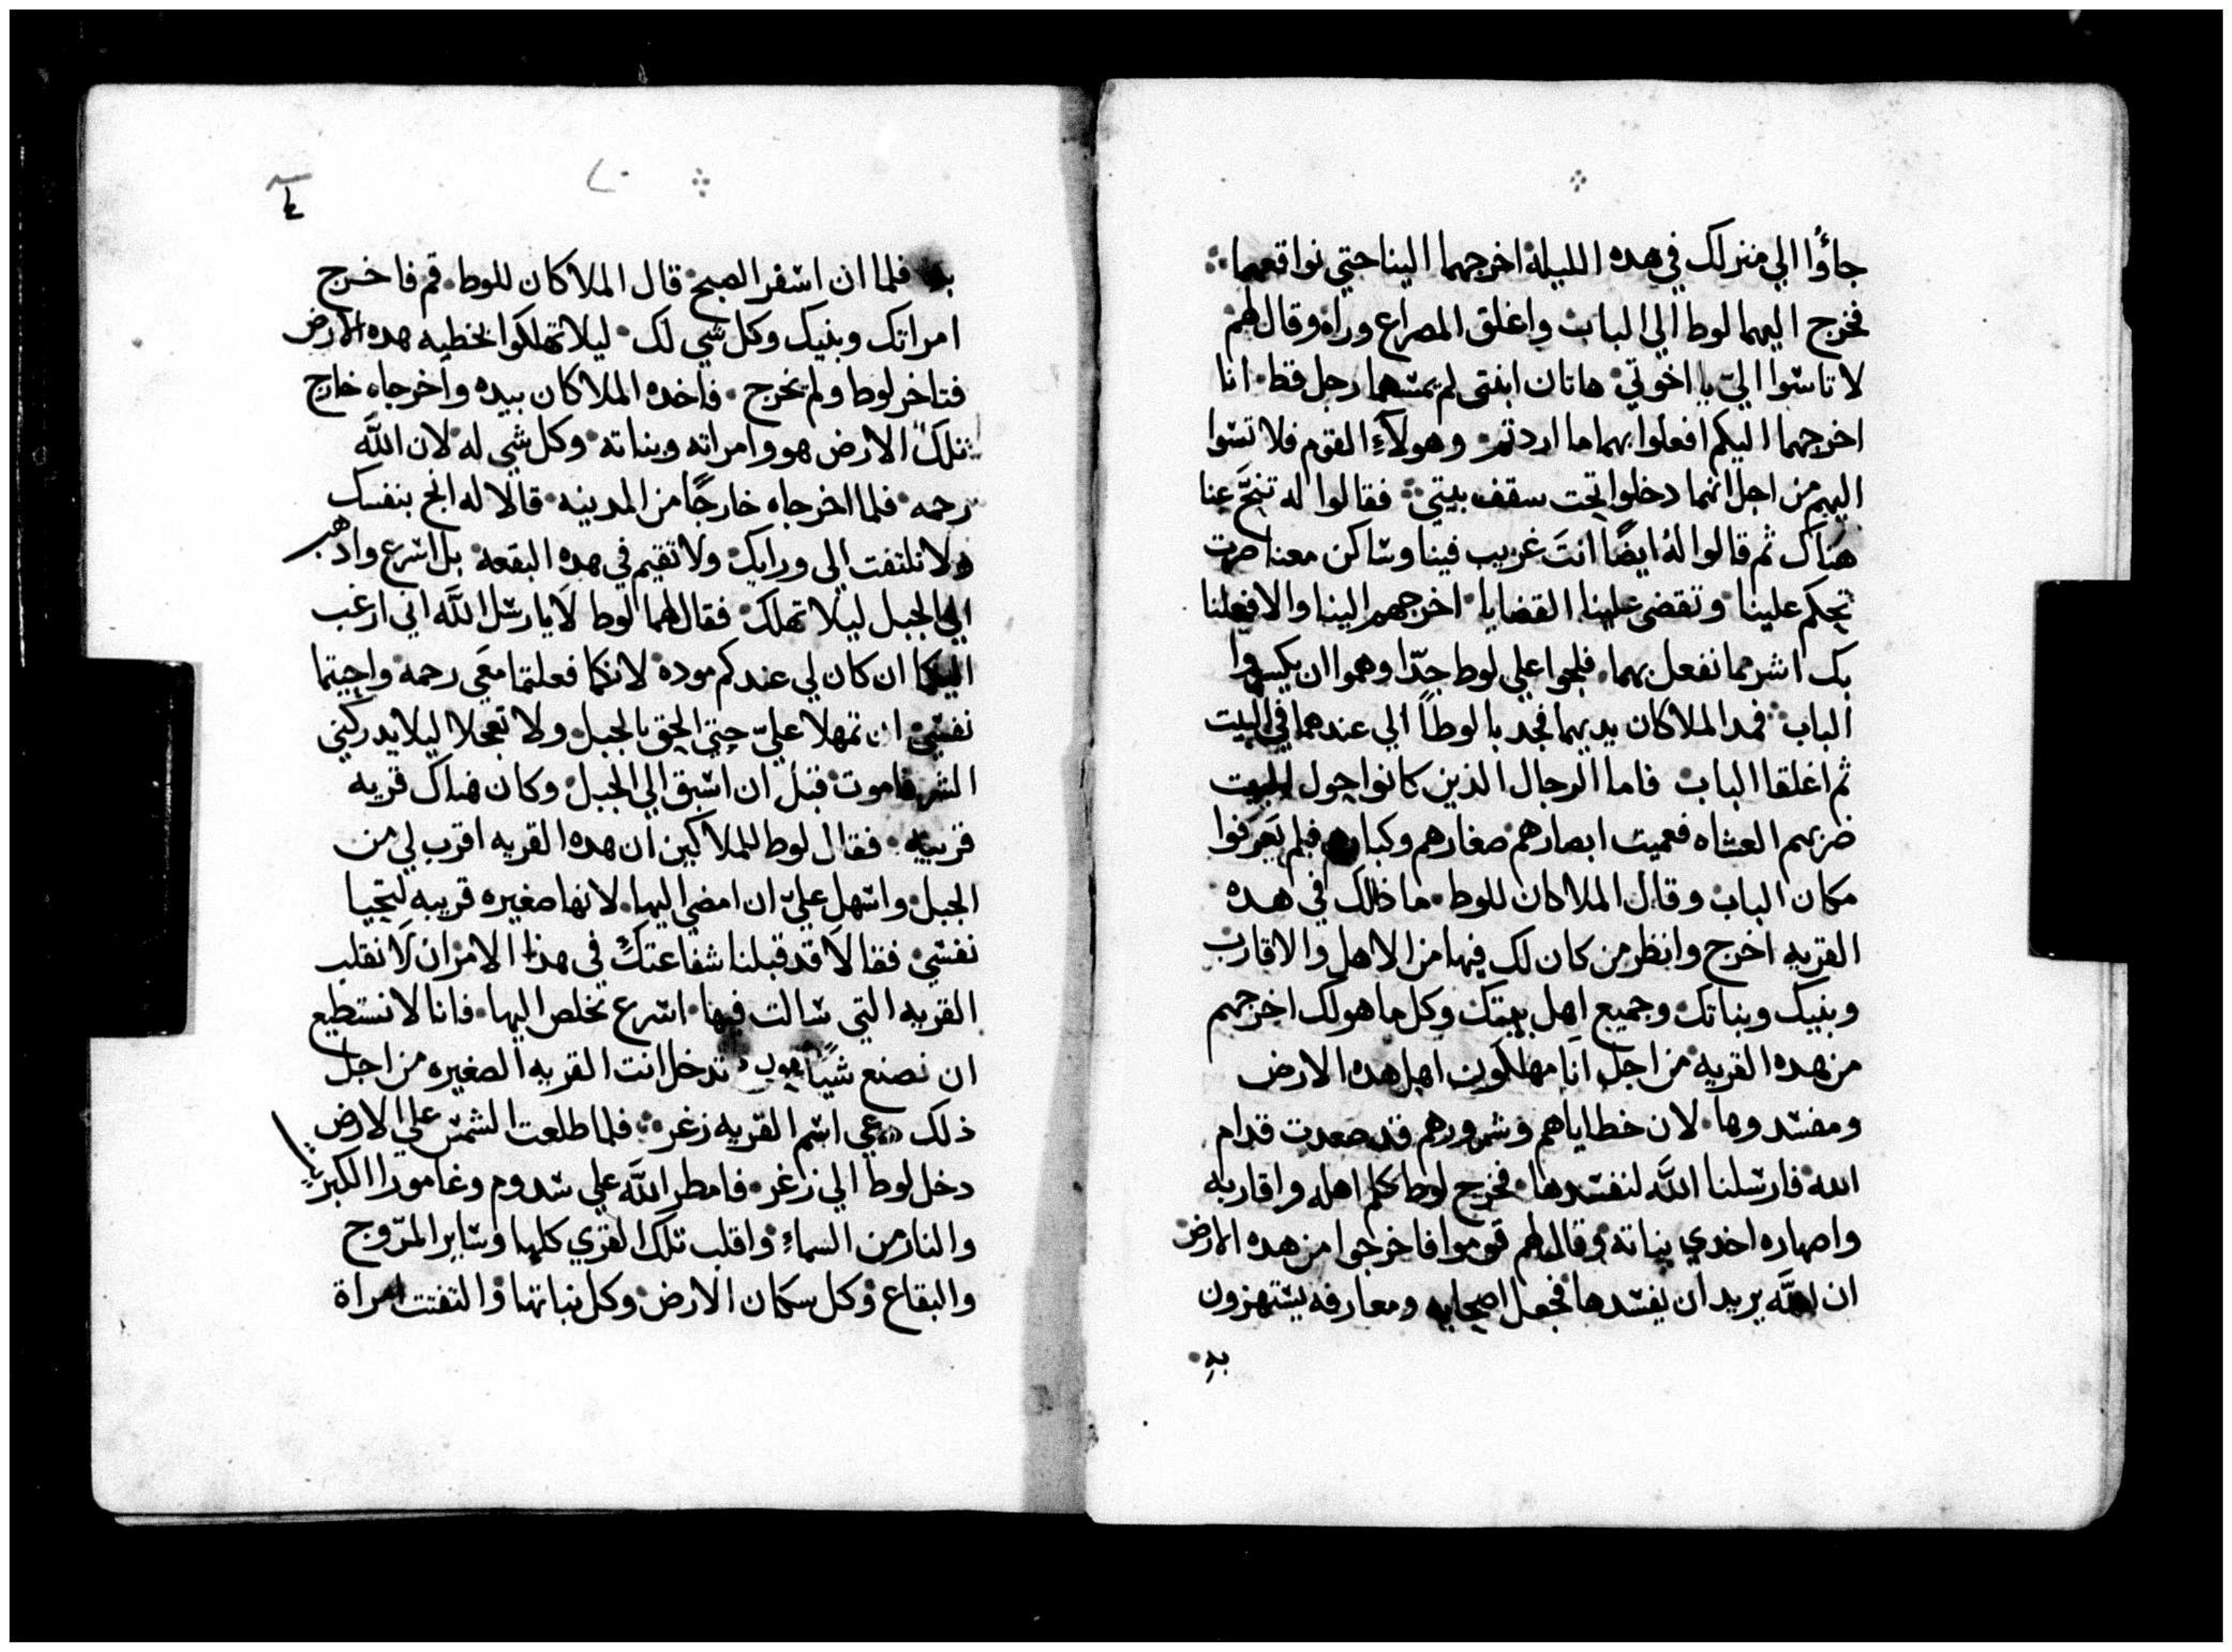 جاؤا الي منزلك في هده الليلة اخرجهما الينا حتي نواقعهما
فخرج اليهما لوط الي الباب واغلق المصراع وراه وقال لهم
لا تاسوا اليّ يا اخوتي هاتان ابنتي لم يمسهما رجل قط انا
اخرجهما اليكم افعلوا بهما ما اردتم وهولاءِ القوم فلا تسوا
اليهم من اجل انهما دخلوا تحت سقف بيتي فقالوا له تنحَّ عنا
هناك ثم قالوا لهُ ايضًا انتَ غريب فينا وساكن معنا صرت
تحكم علينا وتقضي علينا القضايا اخرجهم الينا والا فعلنا
بك اشر مما نفعل بهما فلجوا علي لوط جدًّا وهموا ان يكسروا
الباب فمد الملاكان يديهما فجدبا لوطاً الي عندهما في البيت
ثم اغلقا الباب فاما الرجال الذين كانوا حول البيت
ضربهم العشاه فعميت ابصارهم صغارهم وكبارهم فلم يعرفوا
مكان الباب وقال الملاكان للوط ما ذالك في هده
القريه اخرج وانظر من كان لك فيها من الاهل والاقارب
وبنيك وبناتك وجميع اهل بيتك وكل ما هو لك اخرجهم
من هده القريه من اجل انا مهلكون اهل هده الارض
ومفسدوها لان خطاياهم وشرورهم قد صعدت قدام
الله فارسلنا اللَّه لنفسدها فخرج لوط كلم اهله واقاربه
واصهاره اخدي بناته وقال لهم قوموا فاخرجوا من هده الارض
ان اللَّه يريد ان يفسدها فجعل اصحابه ومعارفه يستهزون
به
٢٠
به فلما ان اسفر الصبح قال الملاكان للوط قم فاخرج
امراتك وبنيك وكل شي لك ليلا تهلكوا بخطيه هده الارض
فتاخر لوط ولم يخرج فاخده الملاكان بيده واخرجاه خارج
تلك الارض هو وامراته وبناته وكل شي له لان اللَّه
رحمه فلما اخرجاه خارجًا من المدينه قالا له انج بنفسك
ولا تلتفت الي ورايك ولا تقيم في هده البقعه بل اسرع وادهب
الي الجبل ليلا تهلك فقال لهما لوط لا يا رسل اللَّه اني ارغب
اليكما ان كان لي عندكم موده لانكما فعلتما معي رحمه واحييتما
نفسي ان تمهلا عليّ حتي الحق بالجبل ولا تعجلا ليلا يدركني
الشر فاموت قبل ان اسبق الي الجبل وكان هناك قريه
قريبه فقال لوط للملاكين ان هده القريه اقرب لي من
الجبل واسهل عليّ ان امضي اليها لانها صغيره قريبه لتحيا
نفسي فقالا قد قبلنا شفاعتك في هذا الامر ان لا نقلب
القريه التي سالت فيها اسرع تخلص اليها فانا لا نستطيع
ان نصنع شيًا تدخل انت القريه الصغيره من اجل
ذلك دعي اسم القريه زغر فلما طلعت الشمس علي الارض
دخل لوط الي زاغر فامطر اللَّه علي سدوم وغامورا الكبريت
والنار من السماءِ واقلب تلك القري كلها وساير المروج
والبقاع وكل سكان الارض وكل نباتها والتفتت امراة